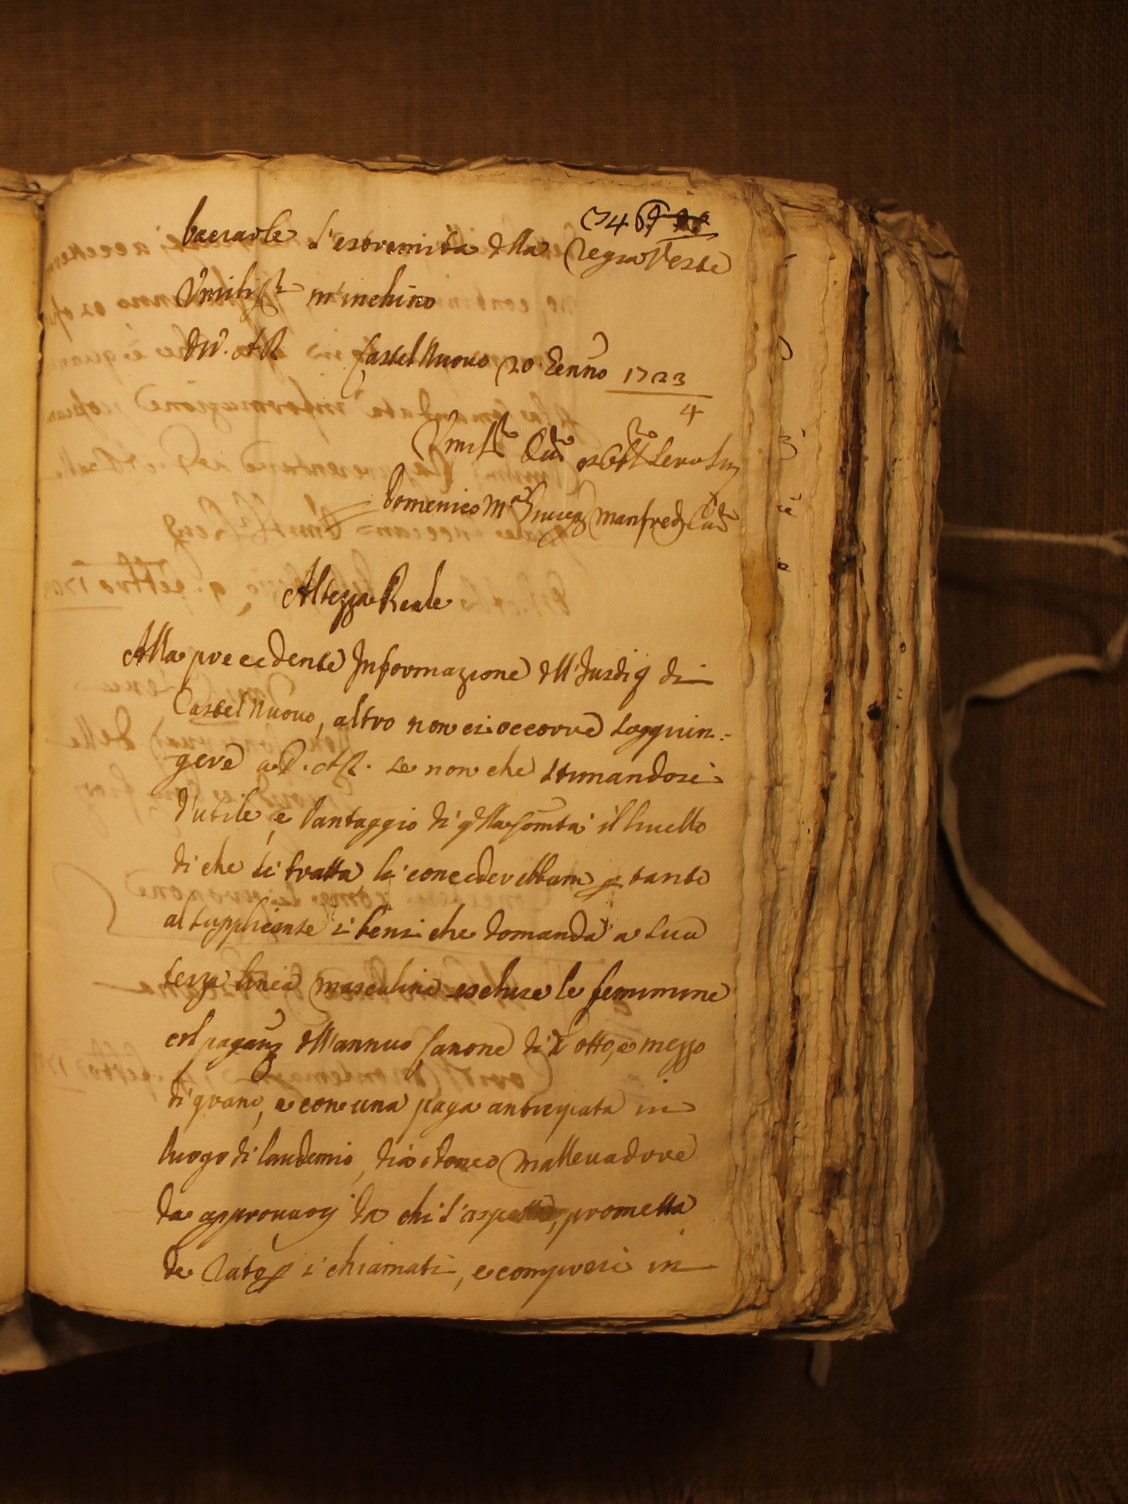 746
baciarle l'estremità della Regia Veste
Umilis.te m'inchino
D.V.A.R. Castel Nuovo 20 Genn.o 1723/4
Umil.mo Servo
Domenico M.a Manfredi
Altezza Reale
Alla precedente Informazione dell'Jusdic.e di
Castel Nuovo, altro non ci occorre soggiun:
gere a V.A.R. se non che stimandosi
d'utile, e vantaggio di q.lla Com.tà il livello
di che si tratta li concederebbam p tanto
al supplicante i beni che domanda a sua
terza linea mascolina escluse le feminine
col pagam.to dell'annuo Canone di otto, e mezzo
di grano, e con una paga anticipata in
luogo di laudemio, dia idoneo Mallevadore
da approvarsi da chi s'aspetta, prometta
de Rato p i chiamati, e compresi in